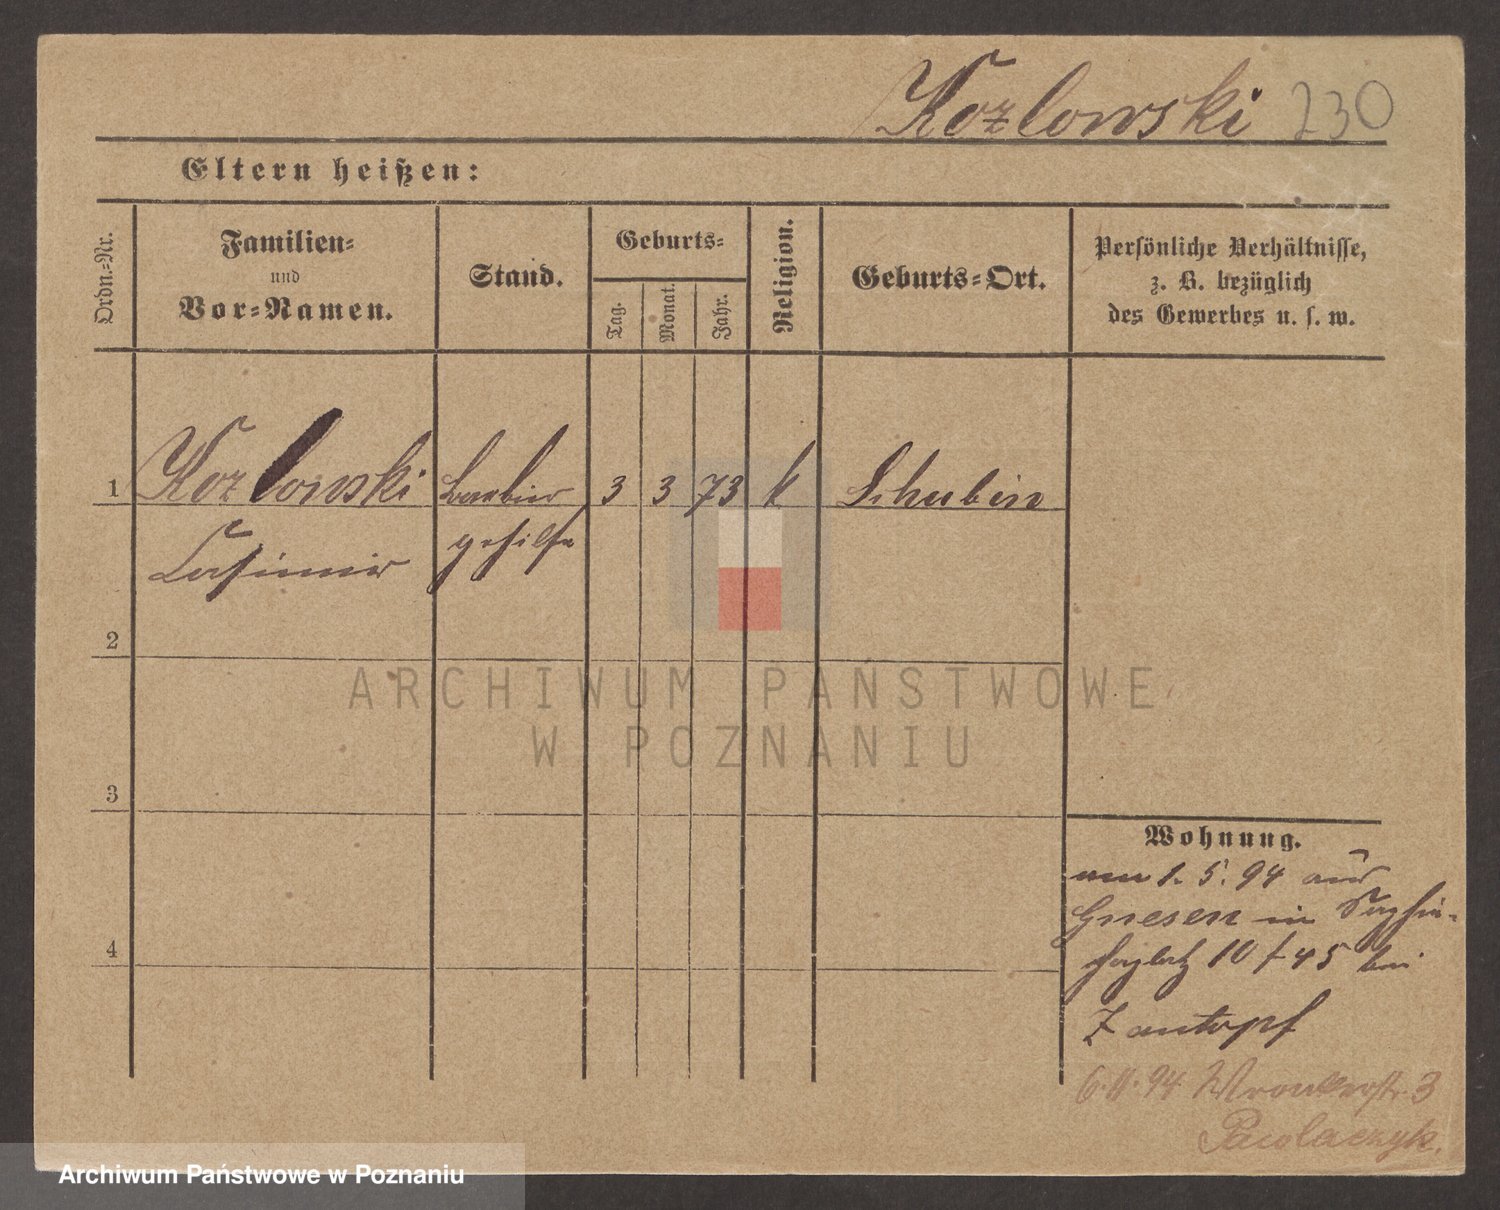 Kozlowski 230
Eltern heißen:
Ordn.=Nr.
Familien=
und
Vor=Namen.
Stand.
Geburts=
Tag.
Monat.
Jahr.
Religion.
Geburts=Ort.
Persönliche Verhältnisse,
z. B. bezüglich
des Gewerbes u. s. w.
1 Kozlowski Barbier 3 3 73 k Schubin
Casimir gehilfe
2
ARCHIWUM PAŃSTWOWE
W POZNANIU
3
Wohnung.
am 1. 5. 94 aus
Gnesen in Sapha-
platz 10/45 bei
Zantopf
6.11.94 Wronkerstr. 3
Pawlaczyk.
4
Archiwum Państwowe w Poznaniu